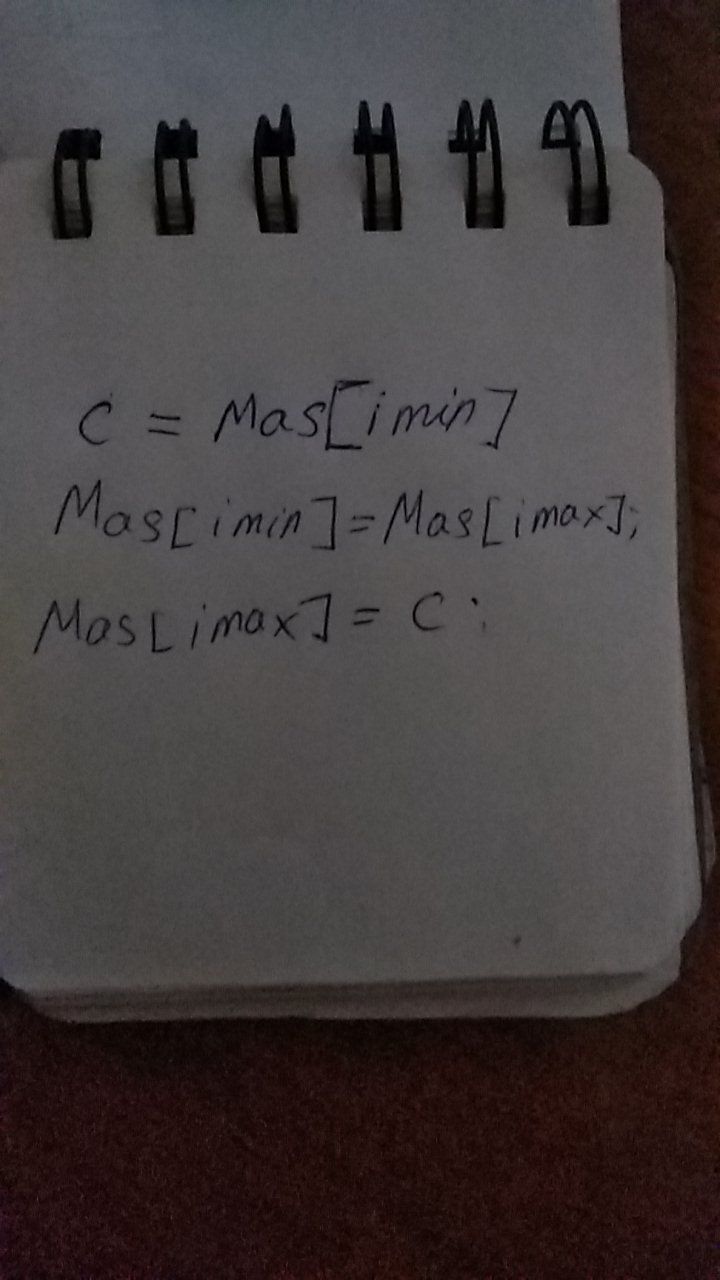 C = Mas[imin]
Mas[imin]=Mas[imax];
Mas[imax]= C;